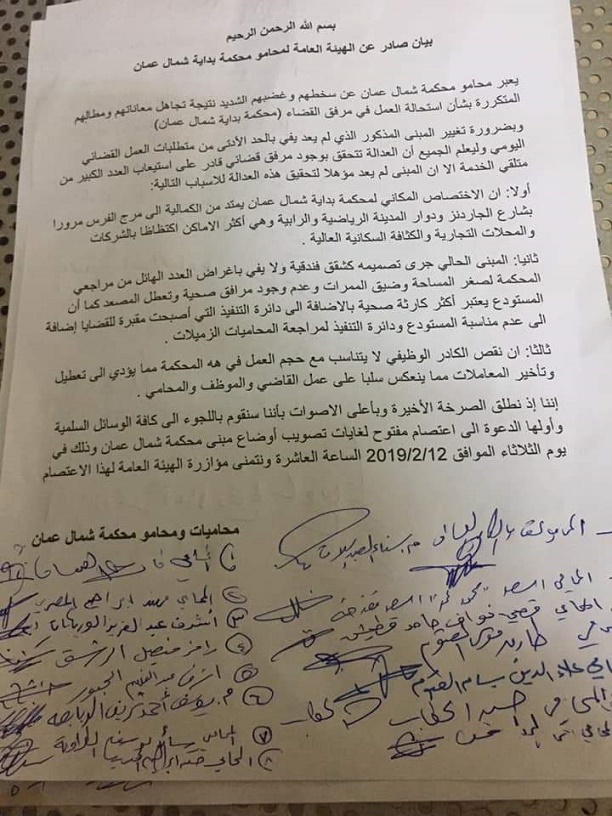 بسم الله الرحمن الرحيم
بيان صادر عن الهيئة العامة لمحامو محكمة بداية شمال عمان
يعبر محامو محكمة شمال عمان عن سخطهم و غضبهم الشديد نتيجة تجاهل معاناتهم ومطالبهم
المتكررة بشأن استحالة العمل في مرفق القضاء (محكمة بداية شمال عمان)
وبضرورة تغيير المبنى المذكور الذي لم يعد يفي بالحد الأدنى من متطلبات العمل القضائي
اليومي وليعلم الجميع أن العدالة تتحقق بوجود مرفق قضائي قادر على استيعاب العدد الكبير من
متلقي الخدمة الا ان المبنى لم يعد مؤهلا لتحقيق هذه العدالة للاسباب التالية:
أولا: ان الاختصاص المكاني لمحكمة بداية شمال عمان يمتد من الكمالية الى مرج الفرس مرورا
بشارع الجاردنز ودوار المدينة الرياضية والرابية وهي أكثر الاماكن اكتظاظا بالشركات
والمحلات التجارية والكثافة السكانية العالية .
ثانيا: المبنى الحالي جرى تصميمه كشقق فندقية ولا يفي باغراض العدد الهائل من مراجعي
المحكمة لصغر المساحة وضيق الممرات وعدم وجود مرافق صحية وتعطل المصعد كما أن
المستودع يعتبر أكثر كارثة صحية بالاضافة الى دائرة التنفيذ التي أصبحت مقبرة للقضايا إضافة
الى عدم مناسبة المستودع ودائرة التنفيذ لمراجعة المحاميات الزميلات .
ثالثا: ان نقص الكادر الوظيفي لا يتناسب مع حجم العمل في هه المحكمة مما يؤدي الى تعطيل
وتأخير المعاملات مما ينعكس سلبا على عمل القاضي والموظف والمحامي .
إننا إذ نطلق الصرخة الأخيرة وبأعلى الاصوات بأننا سنقوم باللجوء الى كافة الوسائل السلمية
وأولها الدعوة الى اعتصام مفتوح لغايات تصويب أوضاع مبنى محكمة شمال عمان وذلك في
يوم الثلاثاء الموافق 2019/2/12 الساعة العاشرة ونتمنى مؤازرة الهيئة العامة لهذا الاعتصام
محاميات ومحامو محكمة شمال عمان
١
٢ المحامي مهند ابراهيم المصري
٣ أشرف عبد العزيز
٤ رامز
٥ اشرف عبد
٦ م. يوسف أحمد شريف
٧ المحامي
٨ المحامي
المحامي قصي نواف حامد
علاء الدين بسام